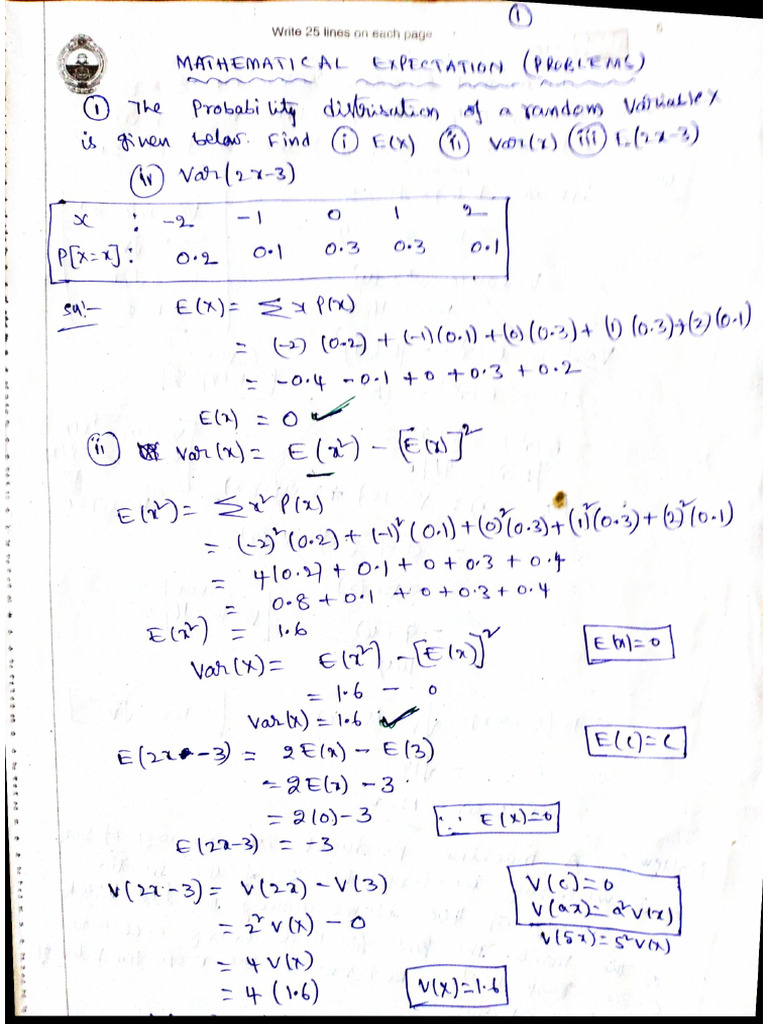 ①
Write 25 lines on each page
MATHEMATICAL EXPECTATION (PROBLEMS)
① The Probability distribution of a random variable X
is given below. Find (i) E(x) (ii) Var(x) (iii) E(2x-3)
(iv) Var(2x-3)
x : -2 -1 0 1 2
P[X=x] : 0.2 0.1 0.3 0.3 0.1
Sol:- E(X) = Σ x P(x)
= (-2) (0.2) + (-1)(0.1) + (0)(0.3) + (1) (0.3) + (2) (0.1)
= -0.4 - 0.1 + 0 + 0.3 + 0.2
E(x) = 0 ✓
(ii) Var(x) = E(x²) - [E(x)]²
E(x²) = Σx² P(x)
= (-2)² (0.2) + (-1)² (0.1) + (0)² (0.3) + (1)² (0.3) + (2)² (0.1)
= 4(0.2) + 0.1 + 0 + 0.3 + 0.4
= 0.8 + 0.1 + 0 + 0.3 + 0.4
E(x²) = 1.6
E(x)=0
Var(X) = E(x²) - [E(x)]²
= 1.6 - 0
Var(x) = 1.6 ✓
E(2x-3) = 2E(x) - E(3)
E(c)=c
= 2E(x) - 3
= 2(0) - 3
∵ E(x)=0
E(2x-3) = -3
V(2x-3) = V(2x) - V(3)
V(c)=0
= 2² V(x) - 0
V(ax)=a²V(x)
V(5x)=5²V(x)
= 4 V(x)
= 4 (1.6)
V(x)=1.6